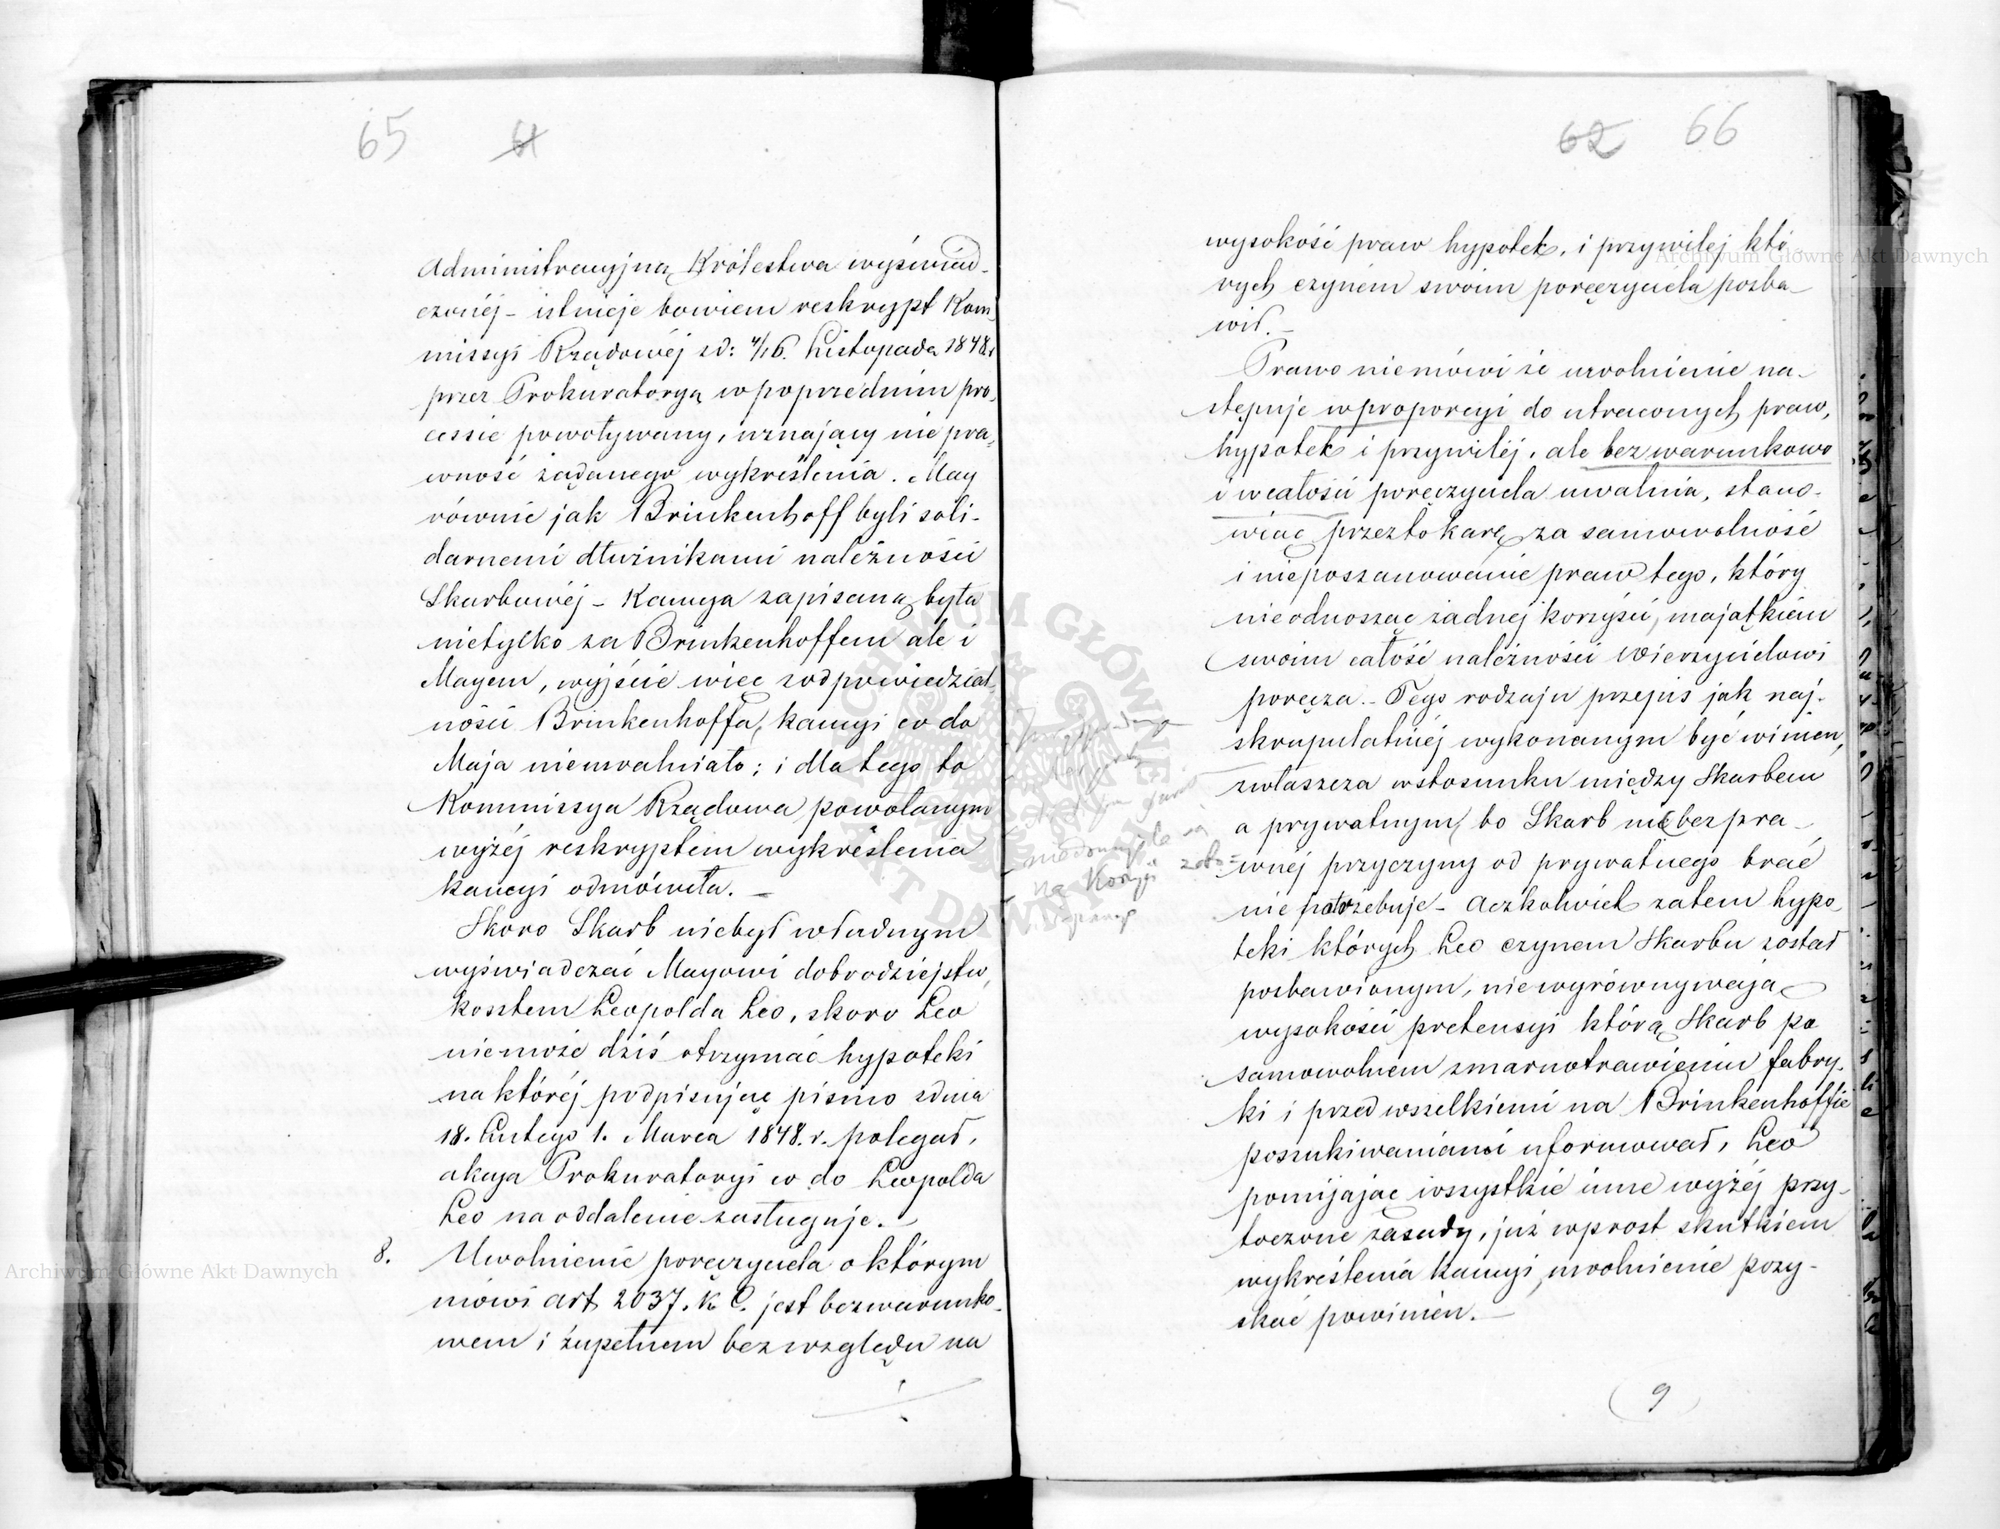 65 61
Administracyjną Królestwa wyświad-
czonéj – istnieje bowiem reskrypt Kom
missyi Rządowéj zd: 4/16. Listopada 1848 r
przez Prokuratoryą w poprzednim pro-
cessie powoływany, uznający niepra-
wność żądanego wykreślenia. May
równie jak Brinkenhoff byli soli-
darnemi dłużnikami należności
Skarbowéj – Kaucya zapisaną była
nietylko za Brinkenhoffem ale i
Mayem, wyjście więc z odpowiedzial-
ności Brinkenhoffa, kaucyi co do
Maja nieuwalniało; i dla tego to
Kommissya Rządowa powołanym
wyżéj reskryptem wykreślenia
kaucyi odmówiła. –
Skoro Skarb niebył władnym
wyświadczać Mayowi dobrodziejstw,
kosztem Leopolda Leo, skoro Leo
niemoże dziś otrzymać hypoteki
na któréj podpisując pismo z dnia
18. Lutego 1. Marca 1848. r. polegał,
akcya Prokuratoryi co do Leopolda
Leo na oddalenie zasługuje. –
8. Uwolnienie poręczyciela o którym
mówi art 2037. K. C. jest bezwarunko-
wem i zupełnem bez względu na
62 66
wysokość praw hypotek, i przywilej któ
rych czynem swoim poręczyciela pozba-
wił. –
Prawo niemówi że uwolnienie na-
stępuje w proporcyi do utraconych praw,
hypotek i przywiléj, ale bezwarunkowo
i w całości poręczyciela uwalnia, stano-
wiąc przez to karę za samowolność
i nieposzanowanie praw tego, który
nieodnosząc żadnej korzyści, majątkiem
swoim całość należności Wierzycielowi
poręcza. – Tego rodzaju przepis jak naj-
skrupulatniéj wykonanym być winien,
zwłaszcza w stosunku między Skarbem
a prywatnym, bo Skarb nic bez pra-
wnéj przyczyny od prywatnego brać
nie potrzebuje – Aczkolwiek zatem hypo-
teki których Leo czynem Skarbu został
pozbawionym, niewyrównywają
wysokości pretensyi którą Skarb po
samowolnem zmarnotrawieniu fabry-
ki i przed wszelkiemi na Brinkenhoffie
poszukiwaniami uformował, Leo
pomijając wszystkie inne wyżéj przy-
toczone zasady, już wprost skutkiem
wykreślenia kaucyi, uwolnienie pozy-
skać powinien. –
9
Archiwum Główne Akt Dawnych
Archiwum Główne Akt Dawnych
ARCHIWUM GŁÓWNE AKT DAWNYCH